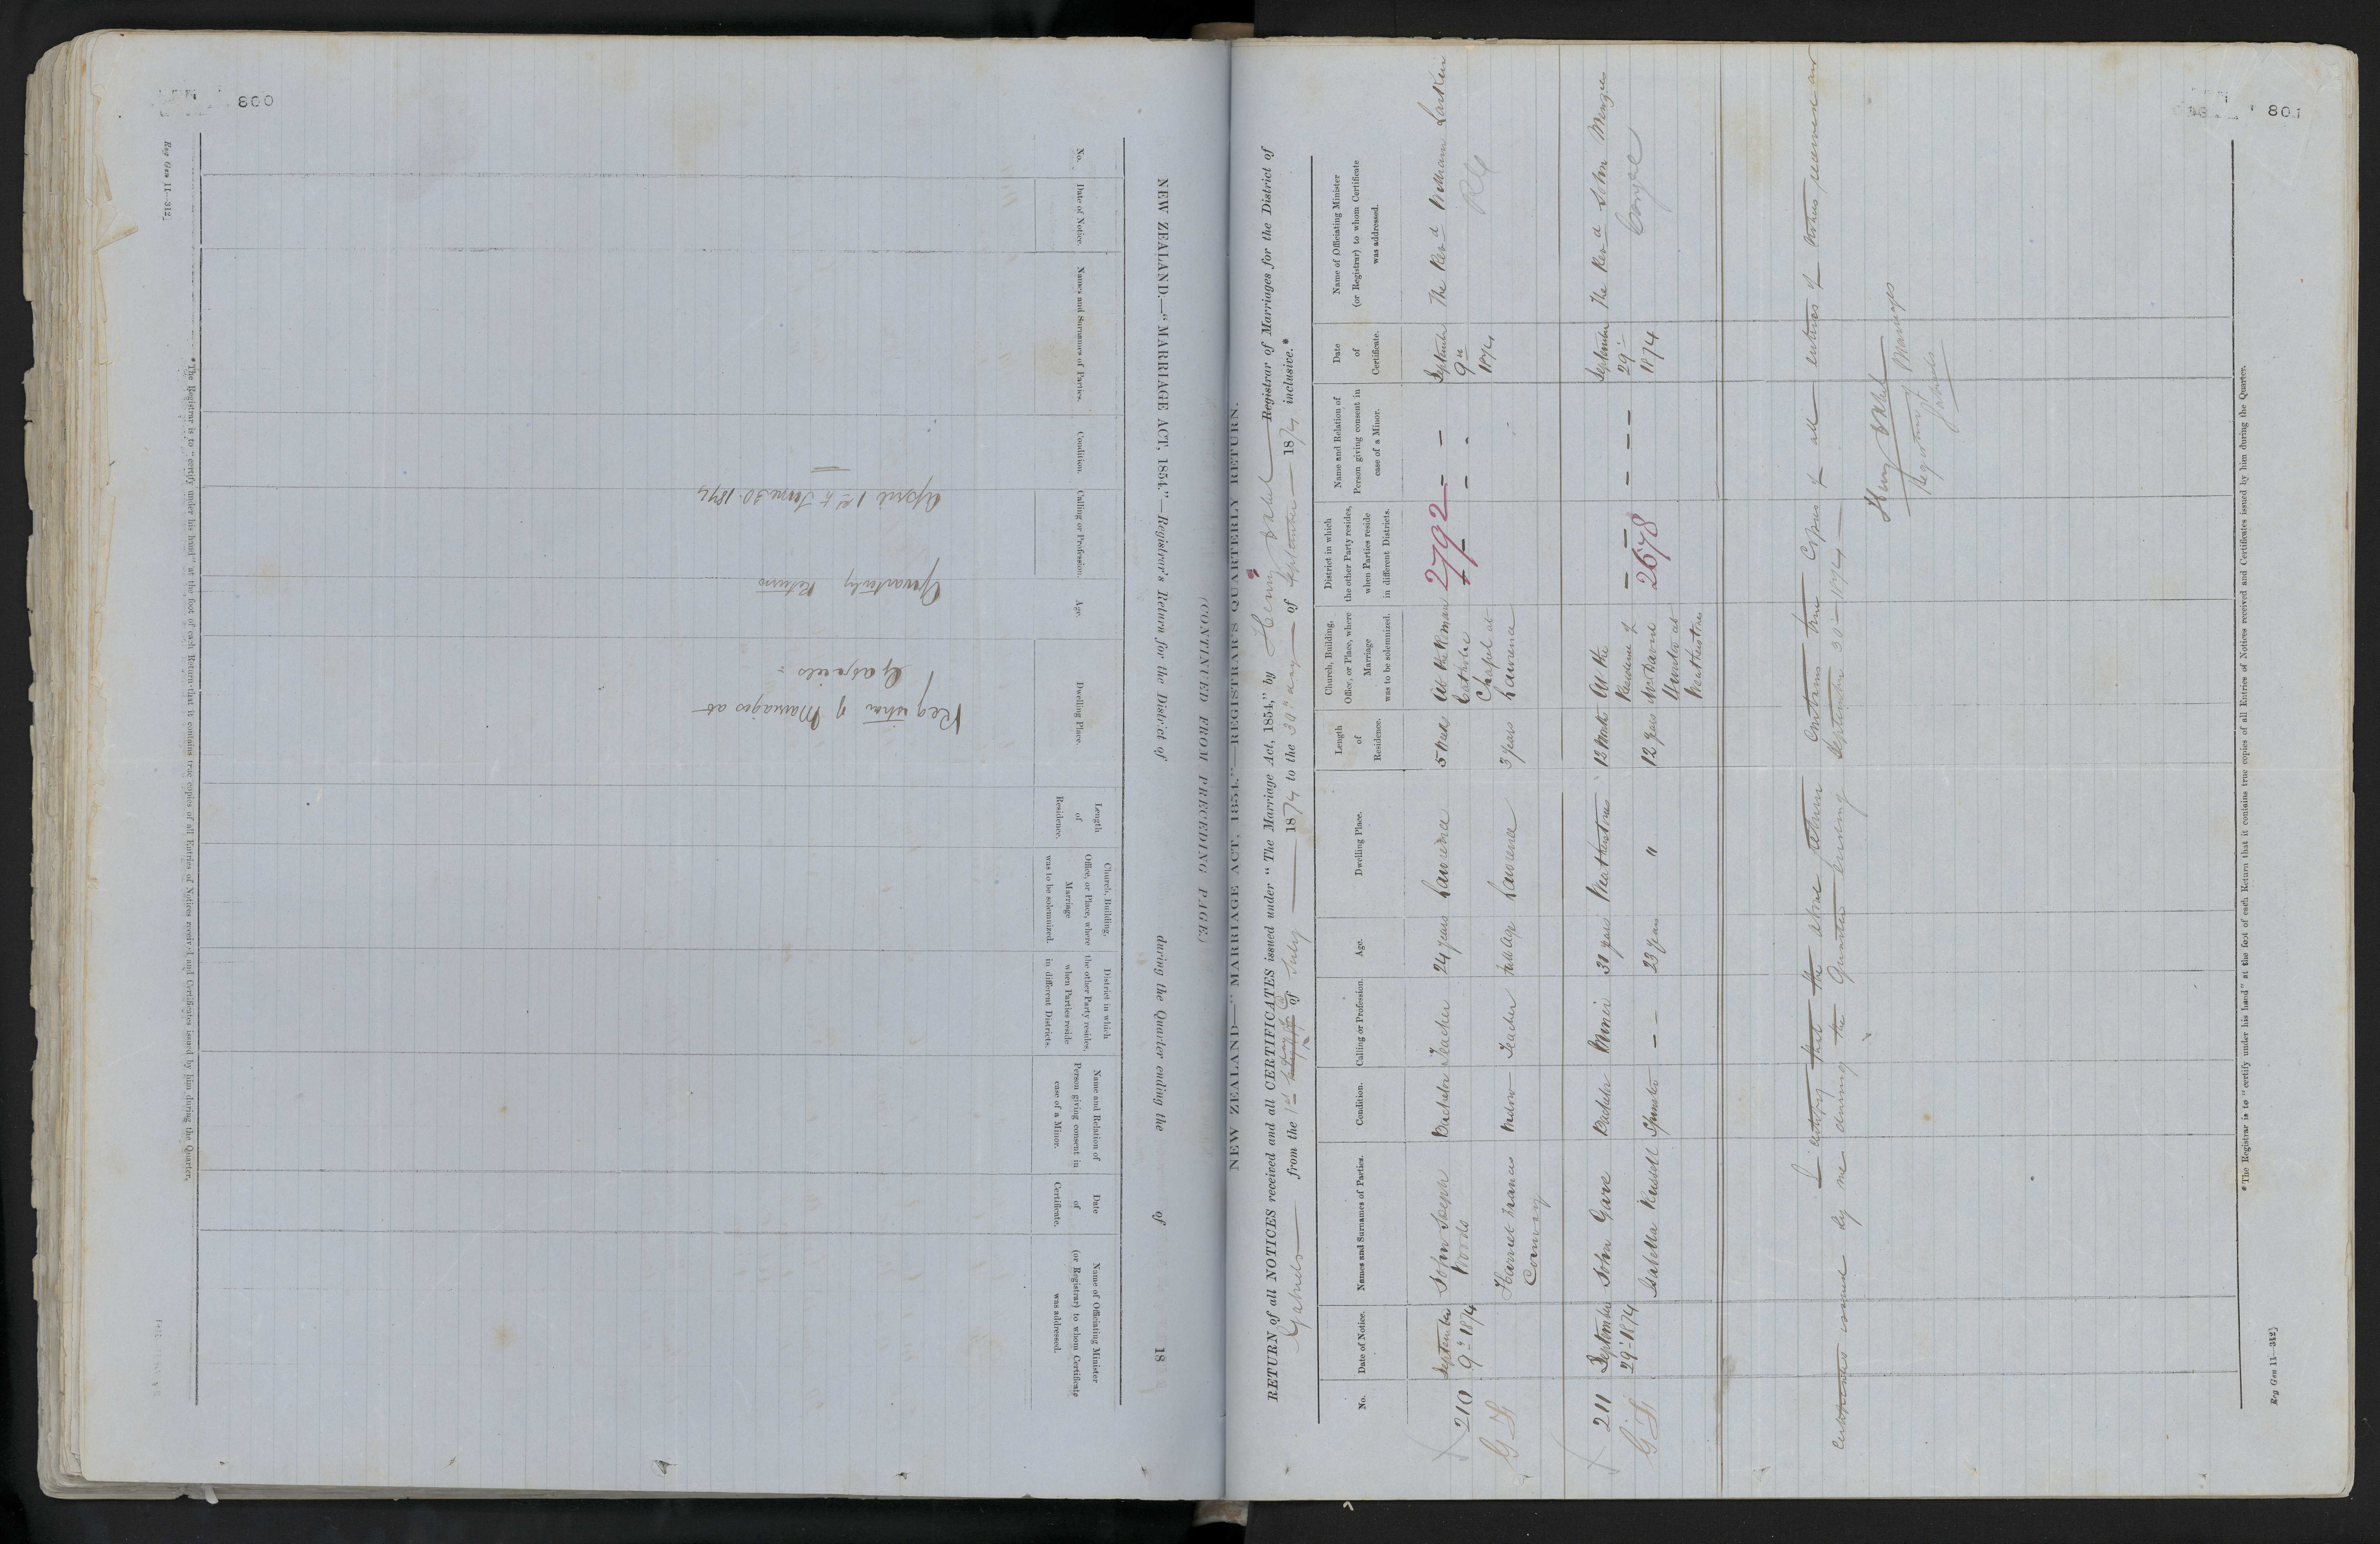 800
Reg Gen 11—312]
NEW ZEALAND.—"MARRIAGE ACT, 1854."—Registrar's Return for the District of during the Quarter ending the of 18
No.
Date of Notice.
Names and Surnames of Parties.
Condition.
Calling or Profession.
Age.
Dwelling Place.
Length
of
Residence.
Church, Building,
Office, or Place, where
Marriage
was to be solemnized.
District in which
the other Party resides,
when Parties reside
in different Districts.
Name and Relation of
Person giving consent in
case of a Minor.
Date
of
Certificate.
Name of Officiating Minister
(or Registrar) to whom Certificate
was addressed.
Registrar of Marriages at
Gabriels
Quarterly Return
April 1st to June 30. 1874
*The Registrar is to "certify under his hand" at the foot of each Return that it contains true copies of all Entries of Notices received and Certificates issued by him during the Quarter.
(CONTINUED FROM PRECEDING PAGE.)
801
NEW ZEALAND—"MARRIAGE ACT, 1854."—REGISTRAR'S QUARTERLY RETURN.
RETURN of all NOTICES received and all CERTIFICATES issued under "The Marriage Act, 1854," by Henry Registrar of Marriages for the District of
Gabriels from the 1st of July 1874 to the 30th day of September 1874 inclusive.*
No.
Date of Notice.
Names and Surnames of Parties.
Condition.
Calling or Profession.
Age.
Dwelling Place.
Length
of
Residence.
Church, Building,
Office, or Place, where
Marriage
was to be solemnized.
District in which
the other Party resides,
when Parties reside
in different Districts.
Name and Relation of
Person giving consent in
case of a Minor.
Date
of
Certificate.
Name of Officiating Minister
(or Registrar) to whom Certificate
was addressed.
210
September
9th 1874
John Joseph
Woods
Bachelor
Teacher
24 years
Lawrence
5 Weeks
At the Roman
Catholic
Chapel at
Lawrence
2792
September
9th
1874
The Revd William Larkin
Harriet Frances
Conway
Widow
Teacher
Full age
Lawrence
3 Years
211
September
29th 1874
John Gare
Bachelor
Miner
30 years
Weatherstones
At the
Residence of
Mr David
Hunter at
Weatherstones
2678
September
29th
1874
The Revd John Menzies
Isabella Russell
Spinster
23 Years
"
12 Years
I certify that the above return contains true Copies of all entries of Notices received and
Certificates issued by me during the Quarter ending September 30th 1874
Henry
Registrar of Marriages
Gabriels
*The Registrar is to "certify under his hand" at the foot of each Return that it contains true copies of all Entries of Notices received and Certificates issued by him during the Quarter.
Reg Gen 11—312]